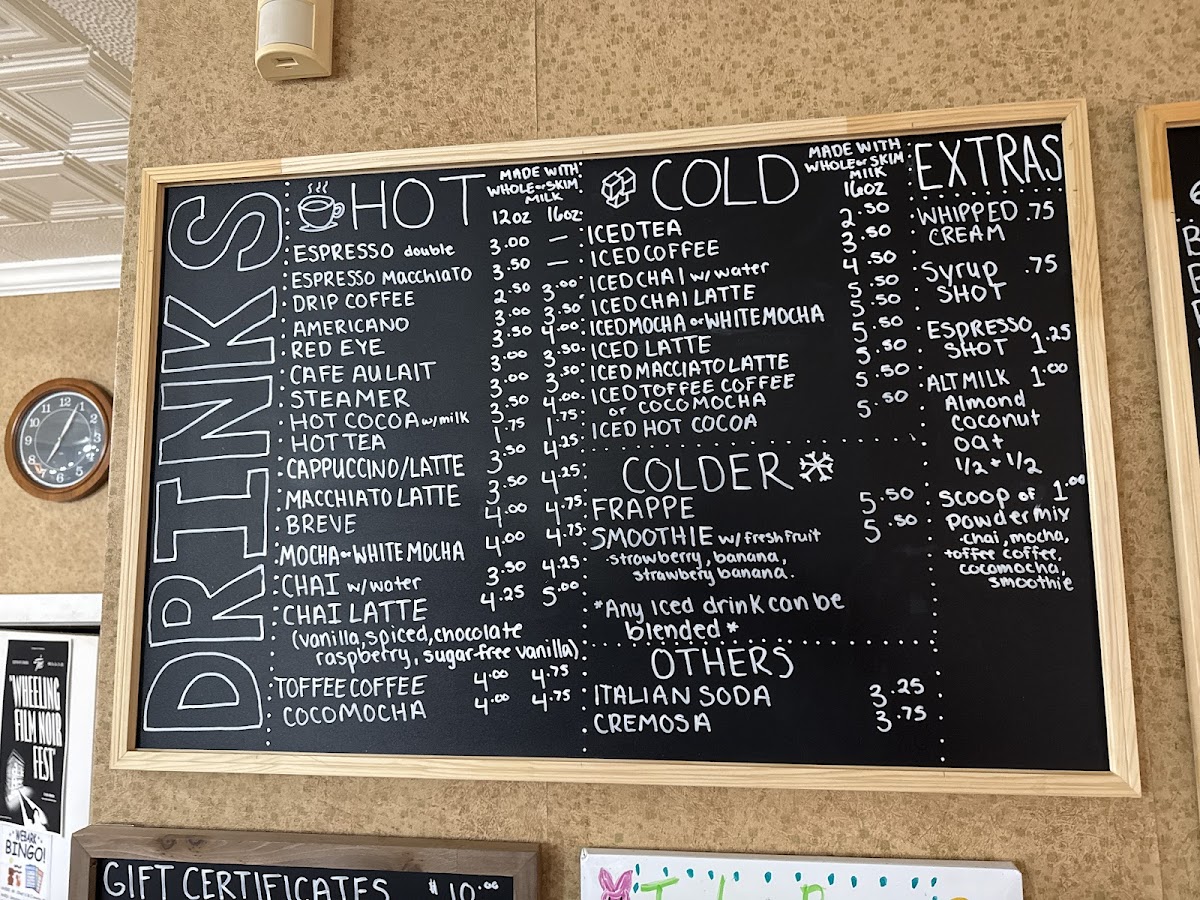 DRINKS
HOT
MADE WITH
WHOLE or SKIM
MILK
12oz 16oz
ESPRESSO double 3.00 —
ESPRESSO Macchiato 3.50 —
DRIP COFFEE 2.50 3.00
AMERICANO 3.00 3.50
RED EYE 3.50 4.00
CAFE AU LAIT 3.00 3.50
STEAMER 3.00 3.50
HOT COCOA w/milk 3.50 4.00
HOT TEA 1.75 1.75
CAPPUCCINO/LATTE 3.50 4.25
MACCHIATO LATTE 3.50 4.25
BREVE 4.00 4.75
MOCHA or WHITE MOCHA 4.00 4.75
CHAI w/water 3.50 4.25
CHAI LATTE 4.25 5.00
(vanilla, spiced, chocolate
raspberry, sugar-free vanilla)
TOFFEE COFFEE 4.00 4.75
COCOMOCHA 4.00 4.75
COLD
MADE WITH
WHOLE or SKIM
MILK
16oz
ICED TEA 2.50
ICED COFFEE 3.50
ICED CHAI w/water 4.50
ICED CHAI LATTE 5.50
ICED MOCHA or WHITE MOCHA 5.50
ICED LATTE 5.50
ICED MACCIATO LATTE 5.50
ICED TOFFEE COFFEE
or COCOMOCHA 5.50
ICED HOT COCOA 5.50
COLDER
FRAPPE 5.50
SMOOTHIE w/ fresh fruit 5.50
strawberry, banana,
strawbery banana.
*Any Iced drink can be
blended*
OTHERS
ITALIAN SODA 3.25
CREMOSA 3.75
EXTRAS
WHIPPED .75
CREAM
Syrup .75
SHOT
ESPRESSO
SHOT 1.25
ALT MILK 1.00
Almond
coconut
oat
1/2 + 1/2
SCOOP OF 1.00
Powder mix
chai, mocha,
toffee coffee,
cocomocha,
smoothie
12
11
1
10
2
9
3
8
4
7
5
6
"WHEELING
FILM NOIR
FEST"
BINGO!
GIFT CERTIFICATES $10.00